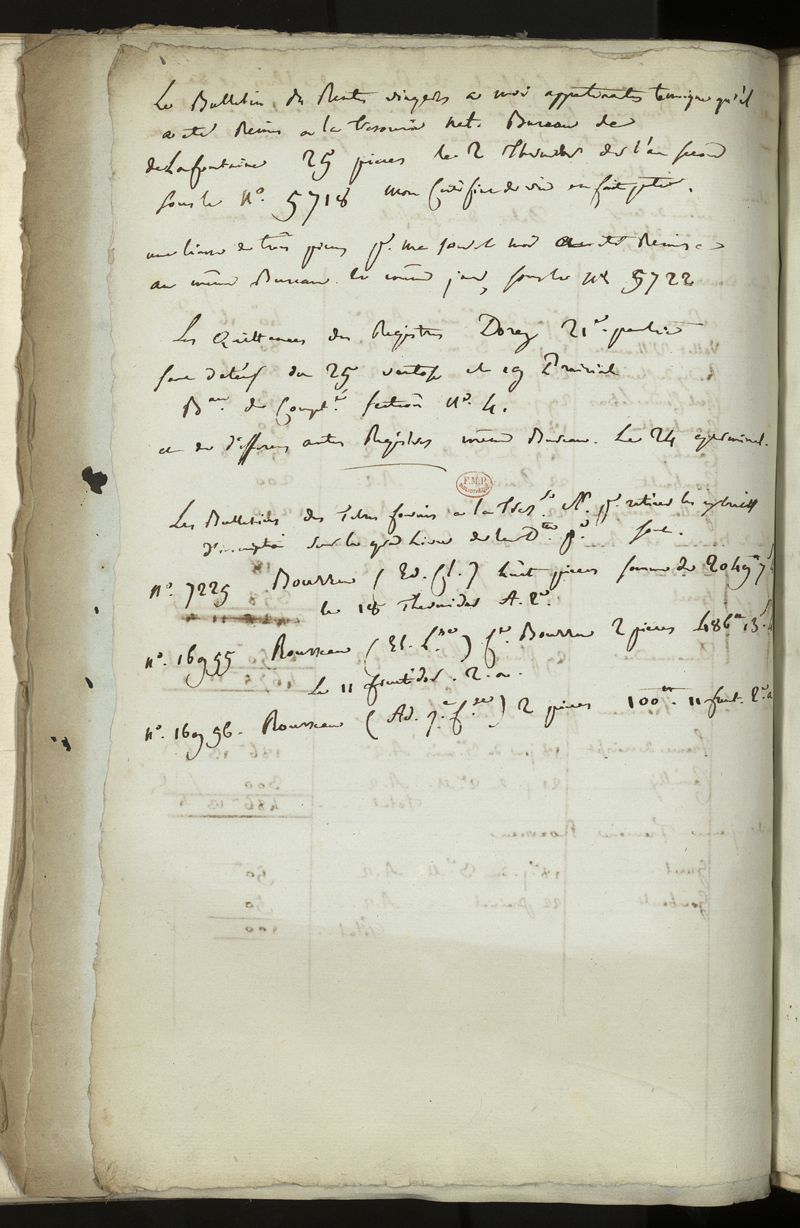 Le Bulletin de Rentes viageres a moi appartenantes temoigne qu'il
a eté Remis a la tresorerie Nat.e Bureau de
de Lafontaine 25 pieces le 2 Thermidor de l'an second
sous le N.o 5718 mon Certificat de vie en fait partie.
une liasse de trois pieces p.r ma soeur et moi a eté Remise
au même Bureau le même jour, sous le N.o 5722
Les Quittances des Registres Dorez 21.e partie
sont datées du 25 ventose et 19 Prairial
B.au de Compt.té section N.o 4.
et de differens autres Registres même Bureau. Le 24 germinal.
F.M.P.
Les Bulletins des Titres fournis a la Tres.ie N.le p.r retirer les extraits
d'inscription sur le grand Livre de la Dette p.que sont.
N.o 7225 Bourru (Ed. Cl.) huit pieces somme de 2049
le 18 Thermidor A. 2.e
N.o 16955 Rousseau (El. ) f.e Bourru 2 pieces 486 13.s
Le 11 fructidor. 2. an.
N.o 16956. Rousseau (Ad. ) 2 pieces 100 11 fruct. 2.e a